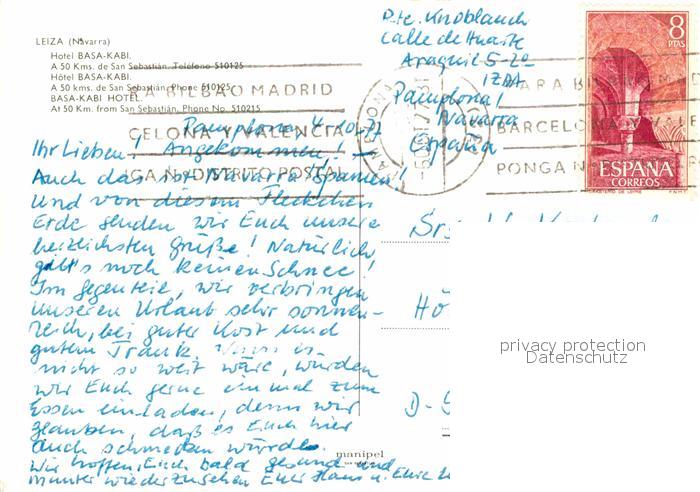 LEIZA (Navarra)
Hotel BASA-KABI.
A 50 Kms. de San Sebastián. Teléfono 510125
Hôtel BASA-KABI.
A 50 kms. de San Sebastián. Phone 510125
BASA-KABI HOTEL.
At 50 Km. from San Sebastián, Phone No. 510215
Rte. Knoblauch
Calle de Huarte
Araquil 5-2º
IZDA
Pamplona!
Navarra
España
8
PTAS
ESPAÑA
CORREOS
BILBAO MADRID
CELONA Y VALENCIA
GA N.º DISTRITO POSTAL
PARA BI
BARCELONA VALE
PONGA N.º
Pamplona, 4.10.77
Ihr Lieben! Angekommen! -
Auch das ist Navarra, Spanien!
Und von diesem Fleckchen
Erde senden wir Euch unsere
herzlichsten Grüße! Natürlich,
gibt's noch keinen Schnee!
Im Gegenteil, wir verbringen
unseren Urlaub sehr sonnen-
reich, bei guter Kost und
gutem Trank. Wenn es
nicht so weit wäre, würden
wir Euch gerne einmal zum
Essen einladen, denn wir
glauben, daß es Euch hier
auch schmecken würde.
Wir hoffen, Euch bald gesund und
munter wiederzusehen Euer Hans u. Eure
Hö
D-
manipel
privacy protection
Datenschutz